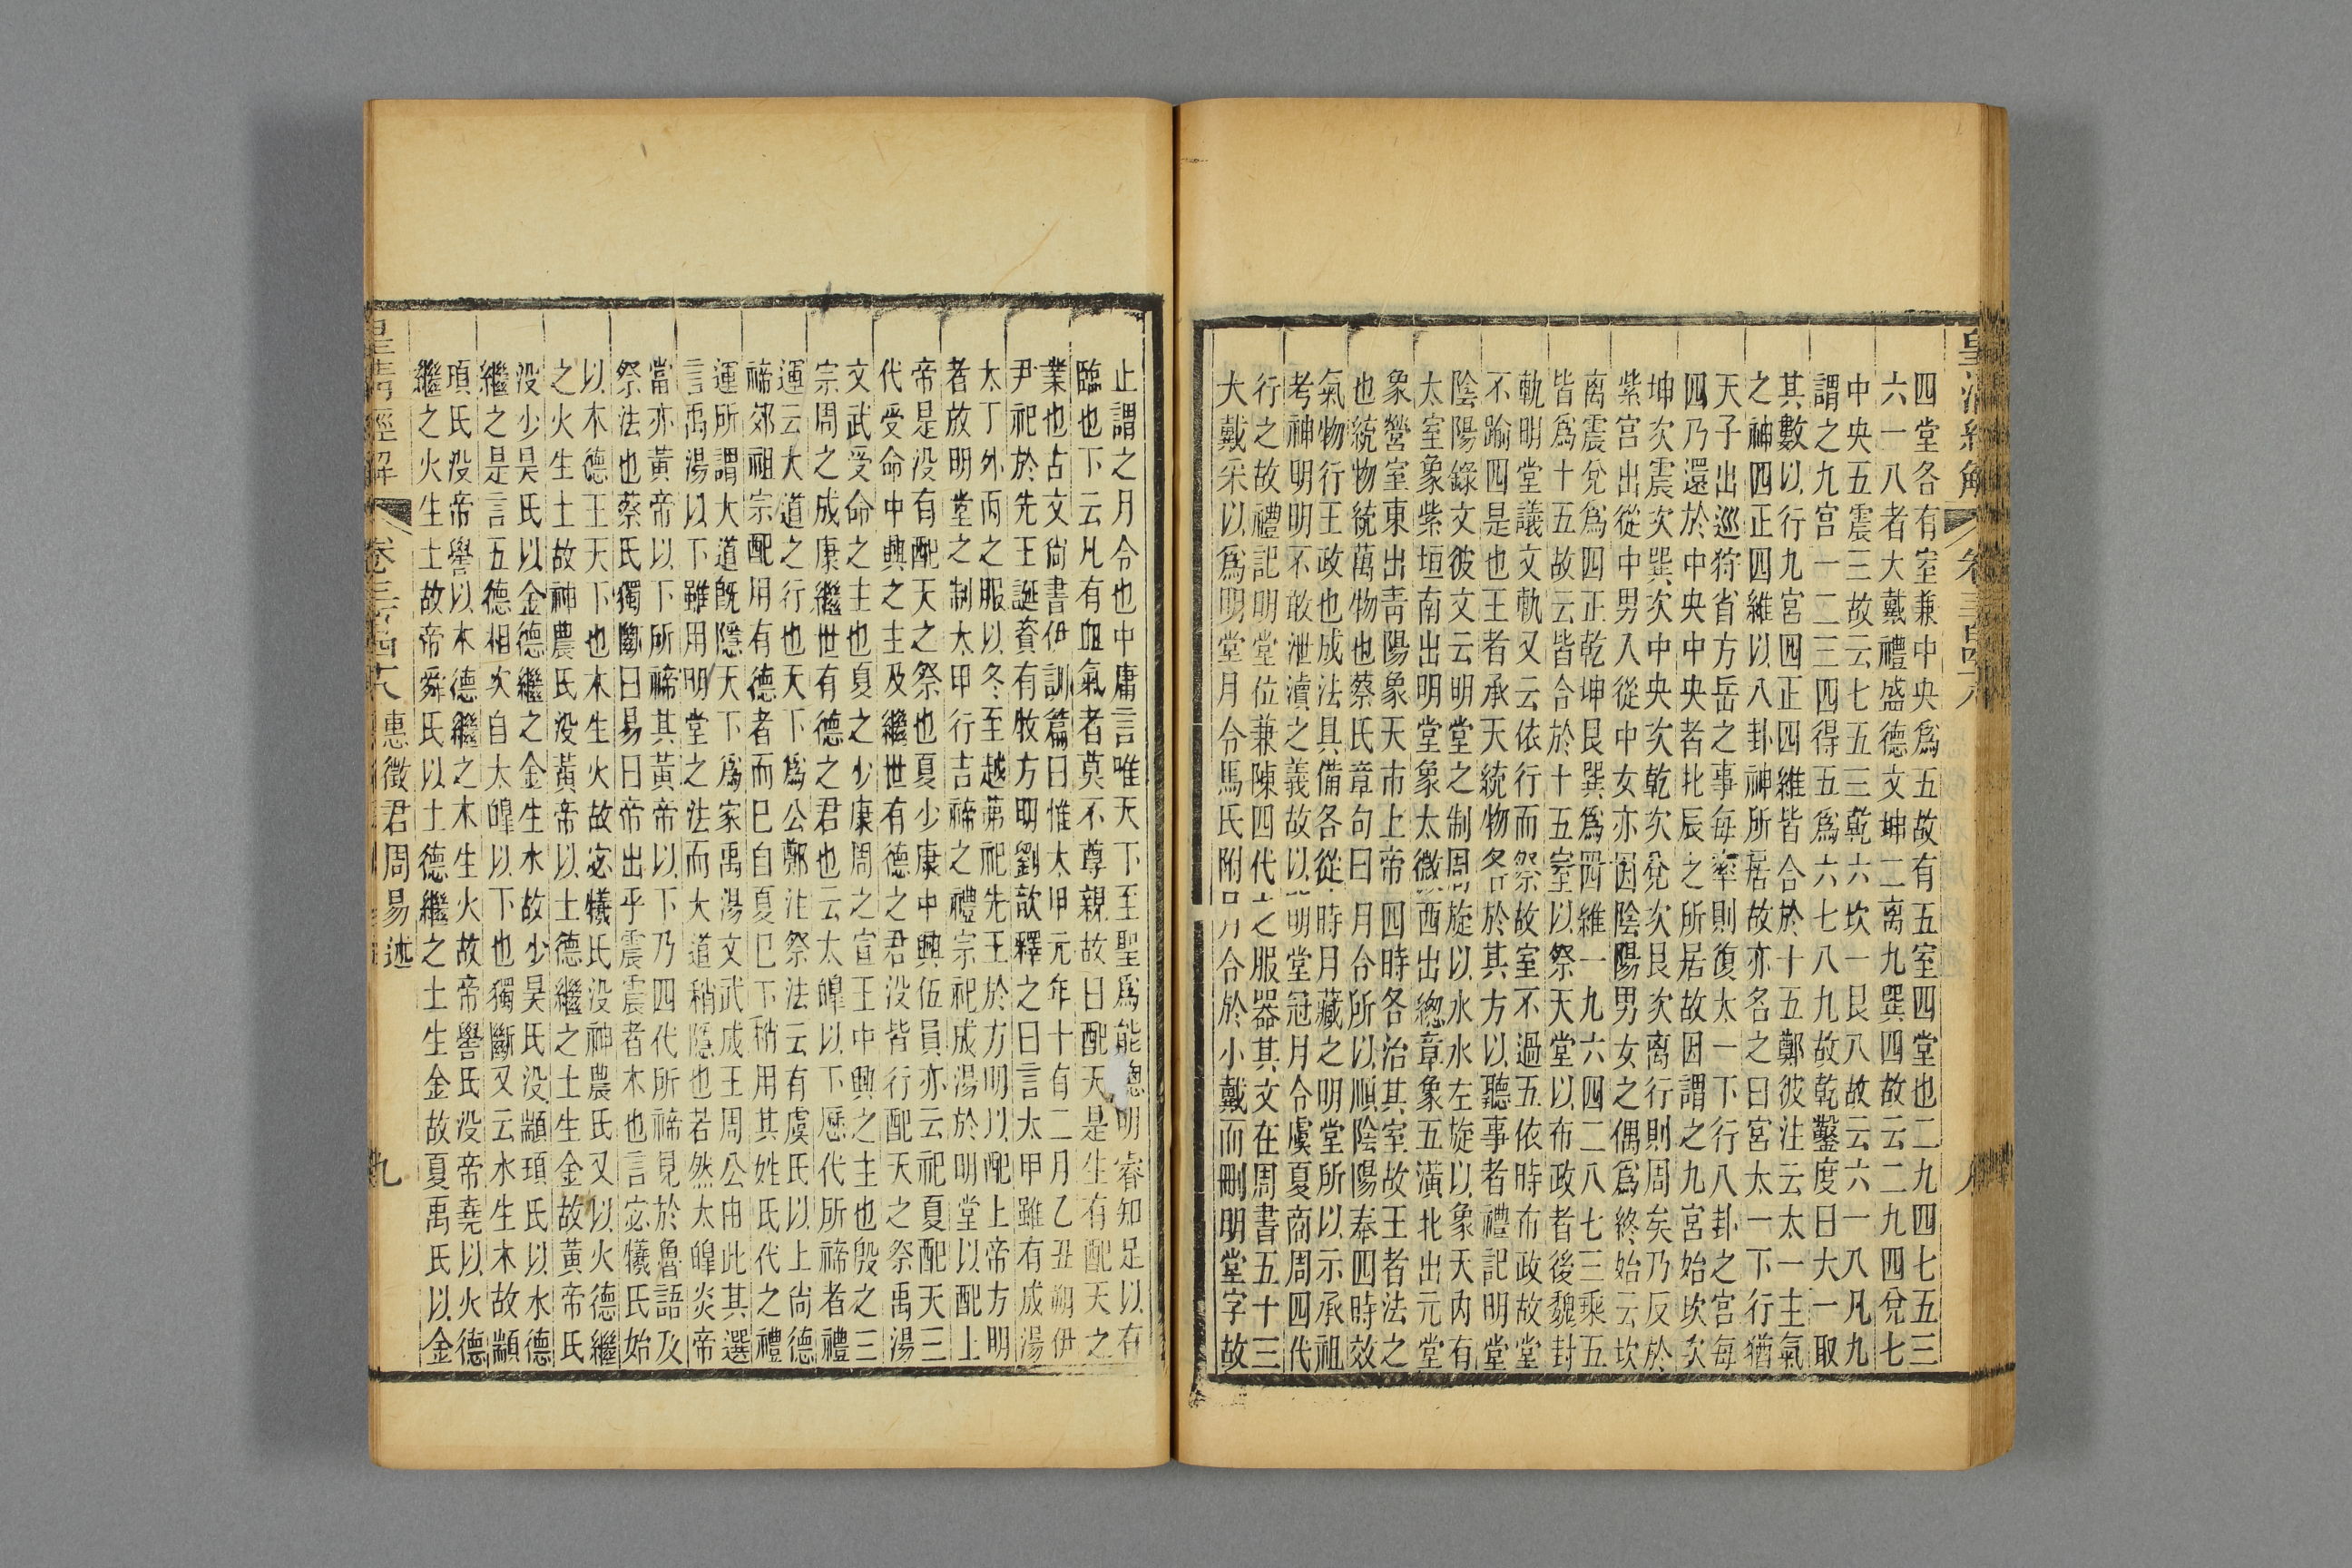 皇清經解
四堂各有室兼中央爲五故有五室四堂也二九四七五三
六一八者大戴禮盛德文坤二离九巽四故云二九四兌七
中央五震三故云七五三乾六坎一艮八故云六一八凡九
謂之九宫一二三四得五爲六七八九故乾鑿度曰大一取
其數以行九宮四正四維皆合於十五鄭彼注云太一主氣
之神四正四維以八卦神所居故亦名之曰宮太一下行猶
天子出巡狩省方岳之事每率則復太一下行八卦之宮每
四乃還於中央中央者北辰之所居故因謂之九宮始坎次
坤次震次巽次中央次乾次兌次艮次离行則周矣乃反於
紫宮出從中男入從中女亦因陰陽男女之偶爲終始云坎
离震兌爲四正乾坤艮巽爲四維一九六四二八七三乘五
皆爲十五故云皆合於十五室以祭天堂以布政者後魏封
軌明堂議文軌又云依行而祭故室不過五依時布政故堂
不踰四是也王者承天統物各於其方以聽事者禮記明堂
陰陽錄文彼文云明堂之制周旋以水水左旋以象天内有
太室象紫垣南出明堂象太微西出緫章象五潢北出元堂
象營室東出青陽象天市上帝四時各治其室故王者法之
也統物統萬物也蔡氏章句曰月令所以順陰陽奉四時效
氣物行王政也成法具備各從時月藏之明堂所以示承祖
考神明明不敢泄瀆之義故以明堂冠月令虞夏商周四代
行之故禮記明堂位兼陳四代之服器其文在周書五十三
大戴采以爲明堂月令馬氏附月令於小戴而刪明堂字故
止謂之月令也中庸言唯天下至聖爲能聰明睿知足以有
臨也下云凡有血氣者莫不尊親故曰配天是生有配天之
業也古文尚書伊訓篇曰惟太甲元年十有二月乙丑朔伊
尹祀於先王誕資有牧方明劉歆釋之曰言太甲雖有成湯
太丁外丙之服以冬至越茀祀先王於方明以配上帝方明
者放明堂之制太甲行吉禘之禮宗祀成湯於明堂以配上
帝是没有配天之祭也夏少康中興伍員亦云祀夏配天三
代受命中興之主及繼世有德之君没皆行配天之祭禹湯
文武受命之主也夏之少康周之宣王中興之主也殷之三
宗周之成康繼世有德之君也云太皥以下歷代所禘者禮
運云大道之行也天下爲公鄭注祭法云有虞氏以上尚德
禘郊祖宗配用有德者而已自夏已下稍用其姓氏代之禮
運所謂大道旣隱天下爲家禹湯文武成王周公由此其選
言禹湯以下雖用明堂之法而大道稍隱也若然太皥炎帝
當亦黃帝以下所禘其黃帝以下乃四代所禘見於魯語及
祭法也蔡氏獨斷曰易曰帝出乎震震者木也言宓犧氏始
以木德王天下也木生火故宓犧氏没神農氏又以火德繼
之火生土故神農氏没黃帝以土德繼之土生金故黃帝氏
没少昊氏以金德繼之金生水故少昊氏没顓頊氏以水德
繼之是言五德相次自太皥以下也獨斷又云水生木故顓
頊氏没帝嚳以木德繼之木生火故帝嚳氏没帝堯以火德
繼之火生土故帝舜氏以土德繼之土生金故夏禹氏以金
皇清經解 惠徵君周易述 九